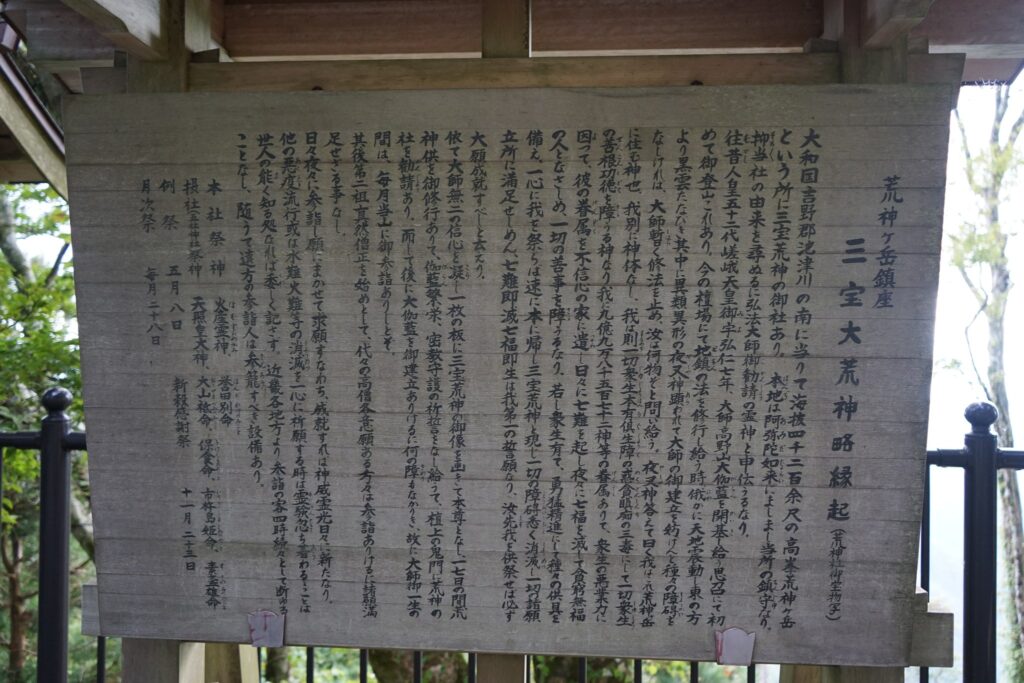 荒神ヶ岳鎮座
三宝大荒神略縁起 (荒神社御宝物写)
大和国吉野郡池津川の南に当りて海抜四千二百余尺の高峯荒神ヶ岳
という所に三宝荒神の御社あり。本地は阿弥陀如来にましまし当所の鎮守なり。
抑当社の由来を尋ぬるに弘法大師御勧請の霊神と申伝うるなり。
往昔人皇五十二代嵯峨天皇御宇弘仁七年、大師高野山大伽藍を開基し給う思召にて初
めて御登山これあり。今の檀場にて地鎮の法を修行し給う時俄かに天地震動し東の方
より黒雲たなびき其中に異類異形の夜叉神顕われて大師の御建立を妨げんと種々障碍を
なしければ、大師暫く修法を止め汝は何物ぞと問い給う。夜叉神答えて曰く我はこれ荒神岳
に住む神也、我別に神体なし、我は則一切衆生本有倶生障の慳貪眠痴の三毒にして一切衆生
の善根功徳を障うる神なり。我に九億九万八千五百七十二神等の眷属ありて、衆生の悪業力に
因って彼の眷属を不信心の家に遣し日々に七難を起し夜々に七福を滅して貧窮無福
の人となさしめ、一切の善事を障うるなり、若し衆生有て、勇猛精進にして種々の供具を
備え、一心に我を祭らば速に本に帰し三宝荒神と現じ一切の障碍悉く消滅し一切の諸願
立所に満足せしめん七難即滅七福即生は我第一の誓願なり、汝先我を供祭せば必ず
大願成就すべしと云えり。
依て大師無二の信心を凝し一枚の板に三宝荒神の御像を画きて本尊となし、一七日の間荒
神供を御修行ありて、伽藍繁栄、密教守護の祈誓をなし給うて、檀上の鬼門に荒神の
社を勧請あり。而して後に大伽藍を御建立ありけるに何の障もなかりき、故に大師御一生の
間は、毎月当山に御参詣ありしとぞ。
其後第二祖真然僧正を始めとして、代々の高僧各々意願ある者々は参詣ありけるに諸願満
足せざる事なし。
日々夜々に参詣し願にまかせて求願すすなわち成就すれば神威霊光日々に新たなり。
他の悪疫流行或は水難火難等の消滅を一心に祈願する時は霊験忽ち蒙わることは
世人の能く知る処なれば委しく記さず。近畿各地方より参詣の客四時縁々として断ゆる
ことなし。随うて遠方の参詣人は参籠すべき設備あり。
本社祭神 火産霊神、誉田別命
摂社三社神社祭神 天照皇大神、大山祇命、保食命、市杵島姫命、妻孟雄命
例祭 五月八日 新穀感謝祭 十一月二十三日
月次祭 毎月二十八日